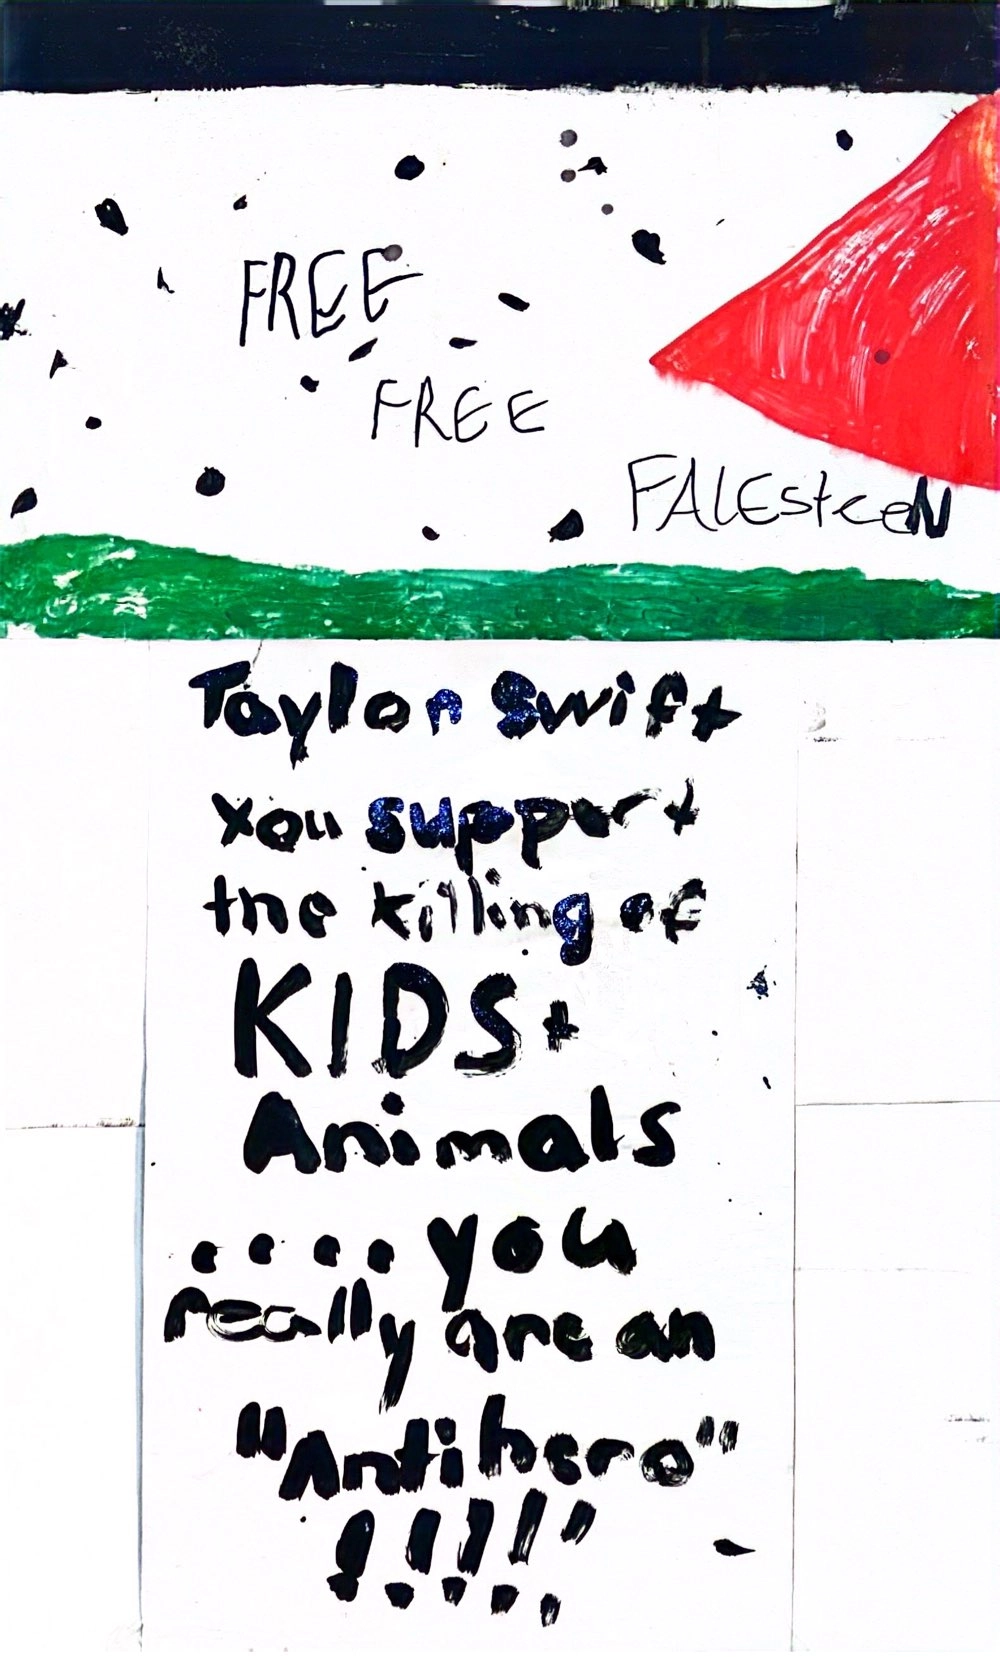 FREE
FREE
FALESteeN
Taylor Swift
you support
the killing of
KIDS +
Animals
.... you
really are an
"Antihero"
!!!!!